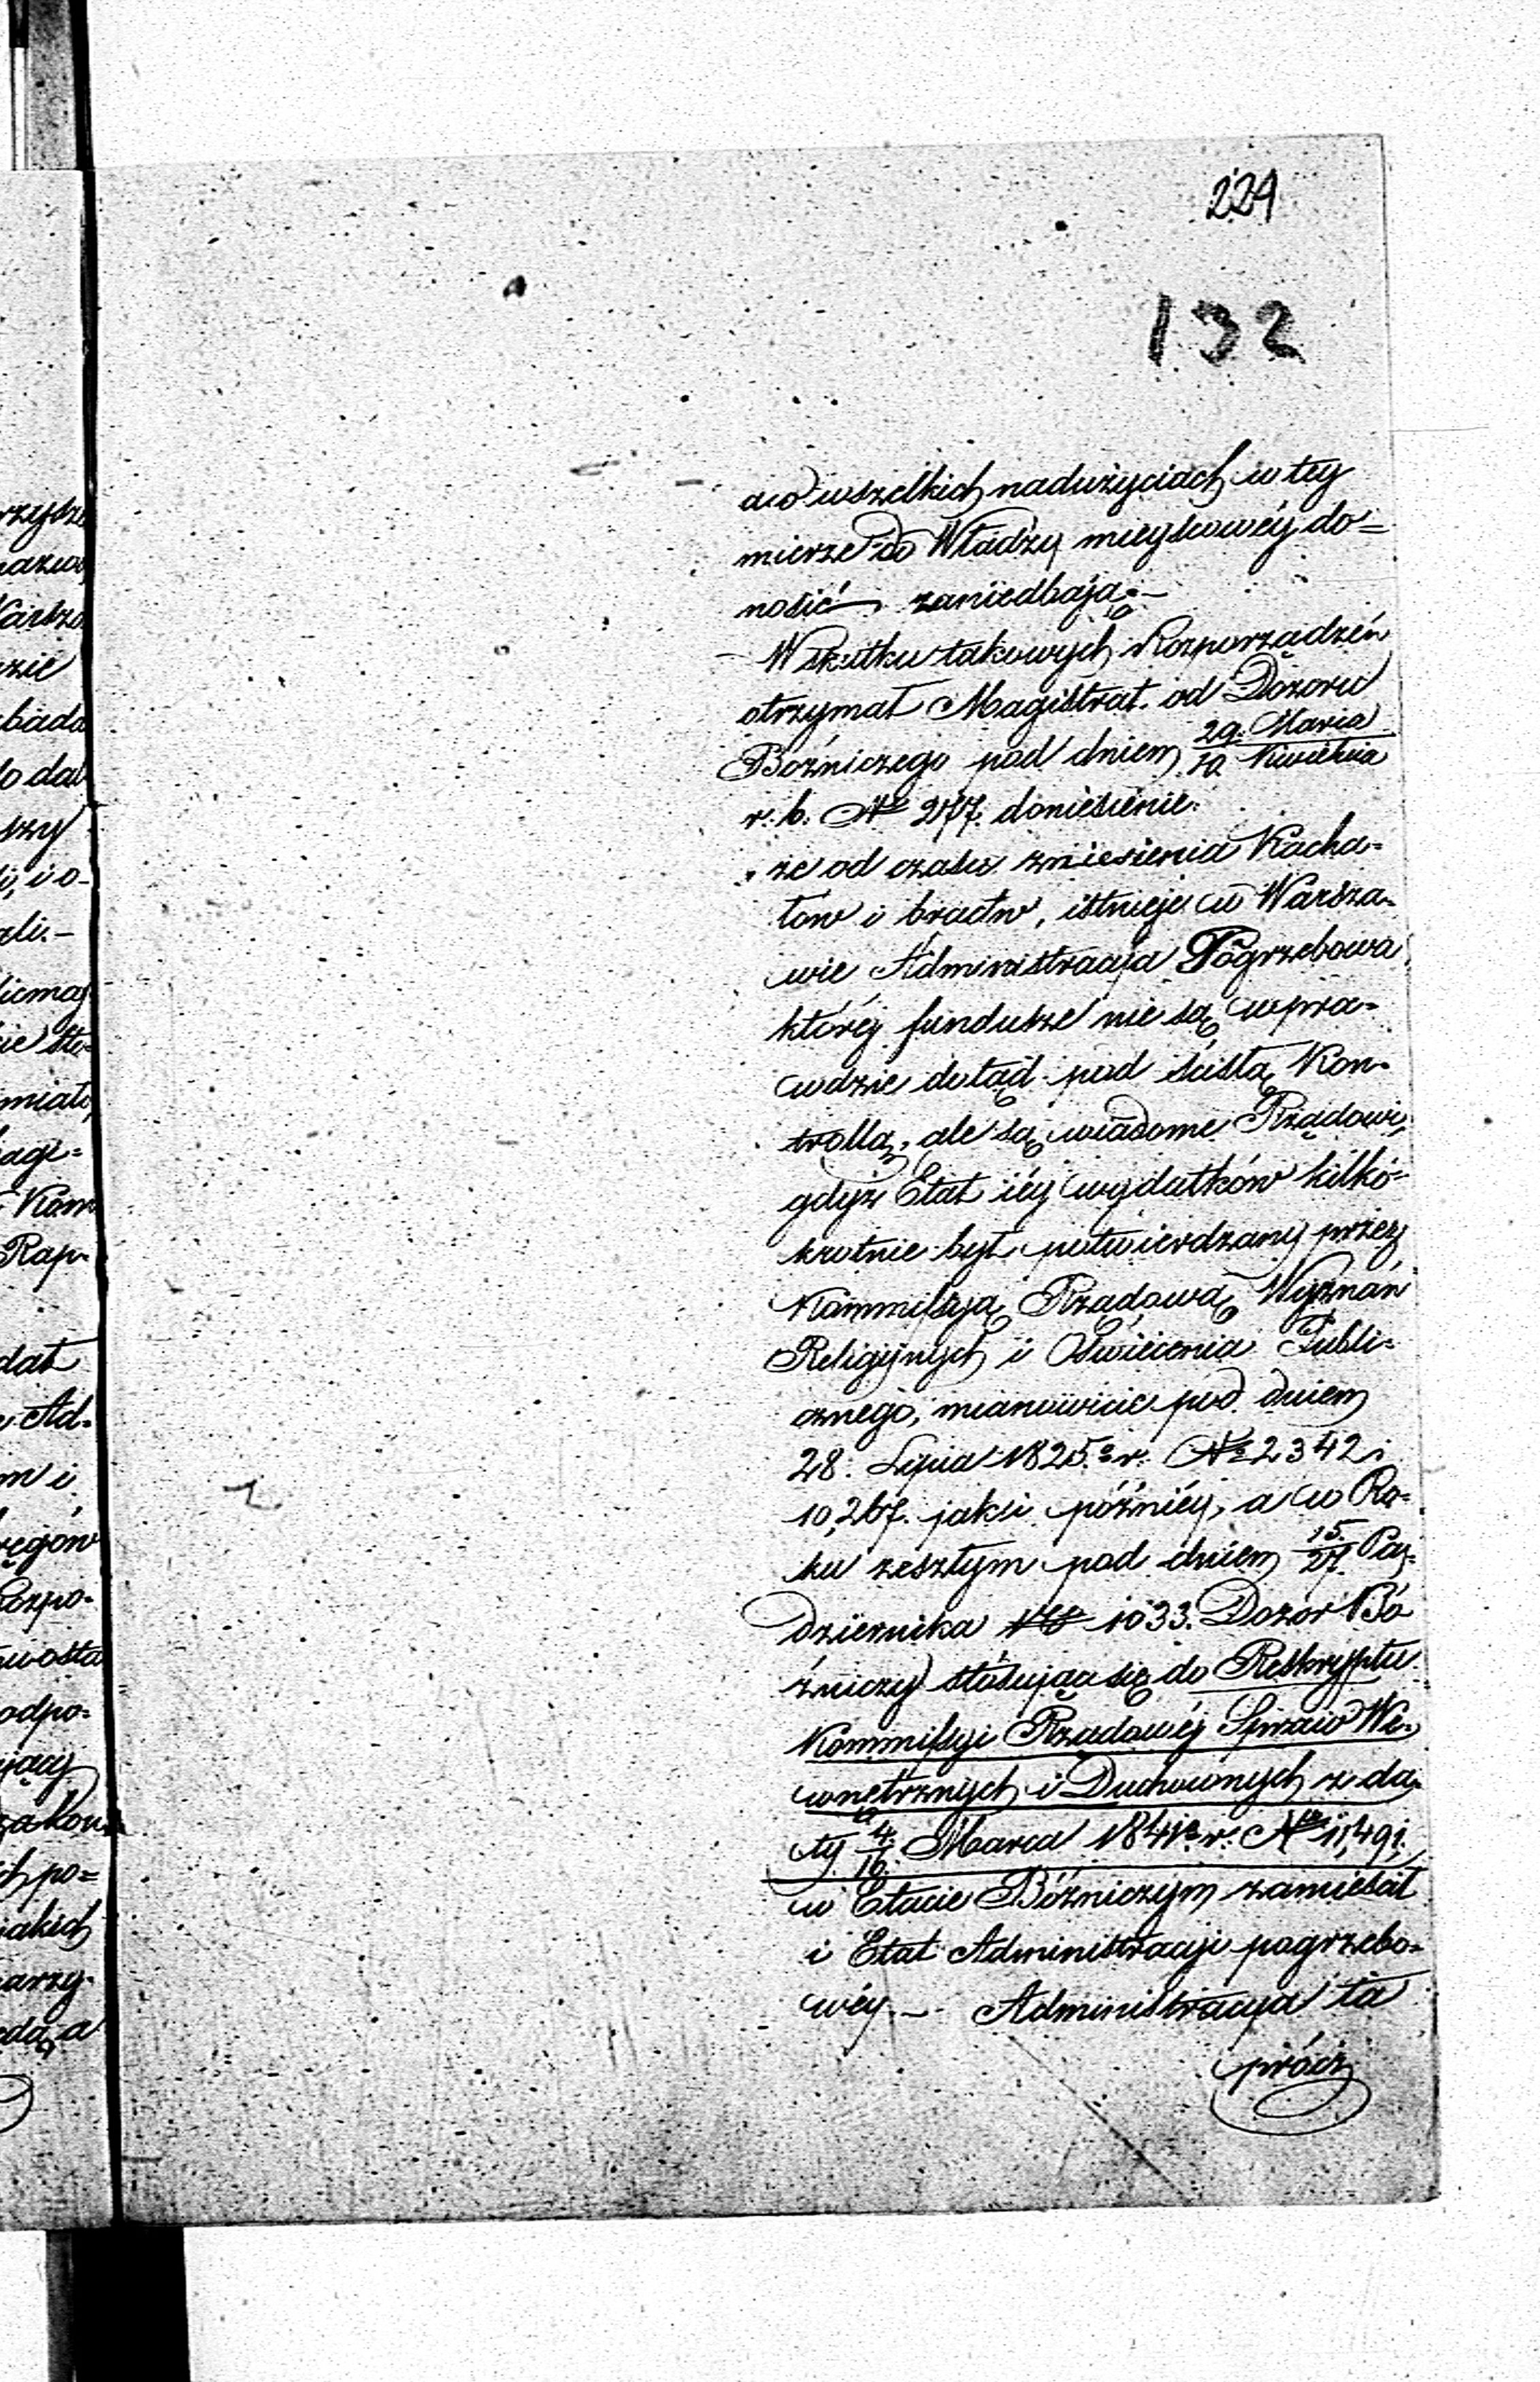 224
132
a o wszelkich nadużyciach w tey
mierze do Władzy mieyscowéy do=
nosić zaniedbają.—
Wskutku takowych Rozporządzeń
otrzymał Magistrat od Dozoru
Bożniczego pod dniem 29. Marca / 10 Kwietnia
r. b. No 277. doniesienie.
że od czasu zniesienia Kacha=
łów i bractw, istnieje w Warsza=
wie Administracja Pogrzebowa
któréj fundusze nie są wpra=
wdzie dotąd pod ścisłą Kon=
trollą, ale są wiadome Rządowi,
gdyż Etat iéy wydatków kilko=
krotnie był potwierdzany przez
Kommissyą Rządową Wyznań
Religijnych i Oświécenia Publi=
cznego, mianowicie pod dniem
28. Lipca 1825. r. No 2342 i
10,267. jak i późniéy, a w Ro=
ku zeszłym pod dniem 15./27. Paź=
dziernika No 1033. Dozór Bó
żniczy stósując się do Reskryptu
Kommissyi Rządowéj Spraw We=
wnętrznych i Duchownych z da=
ty 4./16. Marca 1841 r. No 11,491.
w Etacie Bóżniczym zamieścił
i Etat Administracyi pogrzebo=
wéy.— Administracya ta
prócz
rzysz
Warsza
zie
bada
do dał
szy
i, i o-
ali.—
miało
- Kom
Rap=
dał
e Ad=
m i
ręgów
Rozpo=
odpo=
jący
za kon
h po=
jakich
arzy=
eda, a